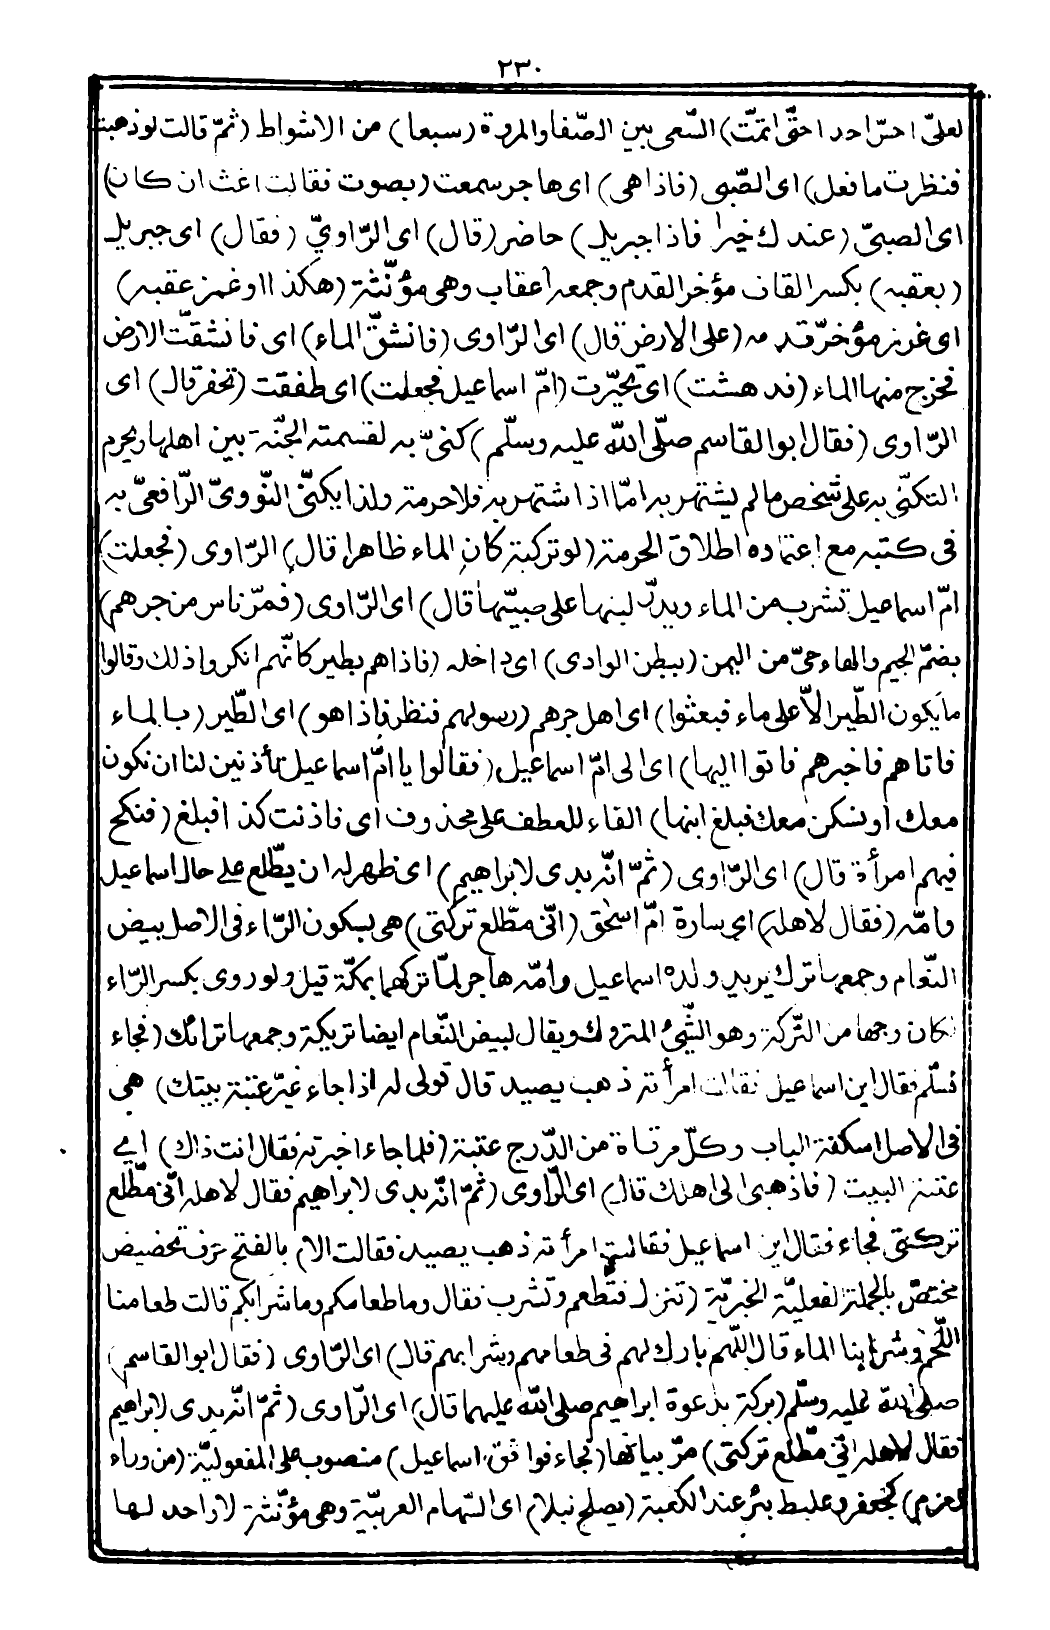 ٢٣٠
لعلىّ احسّ احدا حتّى اتمّت) السّعى بين الصّفا والمروة (سبعا) من الاشواط (ثمّ قالت لوذهبت
فنظرت ما فعل) اى الصّبى (فاذا هى) اى هاجر سمعت (بصوت فقالت اغث ان كان)
اى الصبىّ (عندك خيرا فاذا جبريل) حاضر (قال) اى الرّاوىّ (فقال) اى جبريل
(بعقبه) بكسر القاف مؤخر القدم وجمعه اعقاب وهى مؤنّثة (هكذا اوغمز عقبه)
اى غرز مؤخر قدمه (على الارض قال) اى الرّاوى (فانشقّ الماء) اى فانشقّت الارض
فخرج منها الماء (فدهشت) اى تحيّرت (امّ اسماعيل فجعلت) اى طفقت (تحفر قال) اى
الرّاوى (فقال ابو القاسم صلّى الله عليه وسلّم) كنىّ به لقسمته الجنّة بين اهلها ويحرم
التكنّى به على شخص مالم يشتهر به امّا اذا اشتهر به فلا حرمة ولذا يكنّى النّووىّ الرّافعىّ به
فى كتبه مع اعتماده اطلاق الحرمة (لو تركته كان الماء ظاهرا قال) الرّاوى (فجعلت)
امّ اسماعيل تشرب من الماء ويدرّ لبنها على صبيّها قال) اى الرّاوى (فمرّ ناس من جرهم)
بضمّ الجيم والهاء حىّ من اليمن (ببطن الوادى) اى داخله (فاذا هم بطير كانّهم انكروا ذلك وقالوا
ما يكون الطّير الاّ على ماء فبعثوا) اى اهل جرهم (رسولهم فنظر فاذا هو) اى الطّير (بالماء
فاتاهم فاخبرهم فاتوا اليها) اى الى امّ اسماعيل (فقالوا يا امّ اسماعيل تأذنين لنا ان نكون
معك او نسكن معك فبلغ ابنها) الفاء للعطف على محذوف اى فاذنت كذا فبلغ (فنكح
فيهم امرأة قال) اى الرّاوى (ثمّ انّه بدى لابراهيم) اى ظهر له ان يطّلع على حال اسماعيل
وامّه (فقال لاهله) اى سارة امّ اسحٰق (انّى مطّلع تركتى) هى بسكون الرّاء فى الاصل بيض
النّعام وجمعها ترك يريد ولده اسماعيل وامّه هاجر لمّا تركهما بمكّة قيل ولو روى بكسر الرّاء
لكان وجها من التّركة وهو الشّىء المتروك ويقال لبيض النّعام ايضا تريكة وجمعها ترائك (فجاء
فسلّم فقال اين اسماعيل فقالت امرأته ذهب يصيد قال قولى له اذا جاء غيّر عتبة بيتك) هى
فى الاصل اسكفة الباب وكلّ مرقاة من الدّرج عتبة (فلما جاء اخبرته فقال انت ذاك) اى
عتبة البيت (فاذهبى الى اهلك قال) اى الرّاوى (ثمّ انّه بدى لابراهيم فقال لاهله انّى مطّلع
تركتى فجاء فقال اين اسماعيل فقالت امرأته ذهب يصيد فقالت الا) بالفتح حرف تحضيض
مختصّ بالجملة الفعليّة الخبريّة (تنزل فتطعم وتشرب فقال وما طعامكم وما شرابكم قالت طعامنا
اللّحم وشرابنا الماء قال اللّهم بارك لهم فى طعامهم وشرابهم قال) اى الرّاوى (فقال ابو القاسم)
صلى الله عليه وسلّم (بركة بدعوة ابراهيم صلى الله عليهما قال) اى الرّاوى (ثمّ انّه بدى لابراهيم
فقال لاهله انّى مطّلع تركتى) مرّ بيانها (فجاء فوافق اسماعيل) منصوب على المفعوليّة (من وراء
زمزم) كجعفر وعلبط بئر عند الكعبة (يصلح نبلا) اى السّهام العربيّة وهى مؤنّثة لا واحد لها